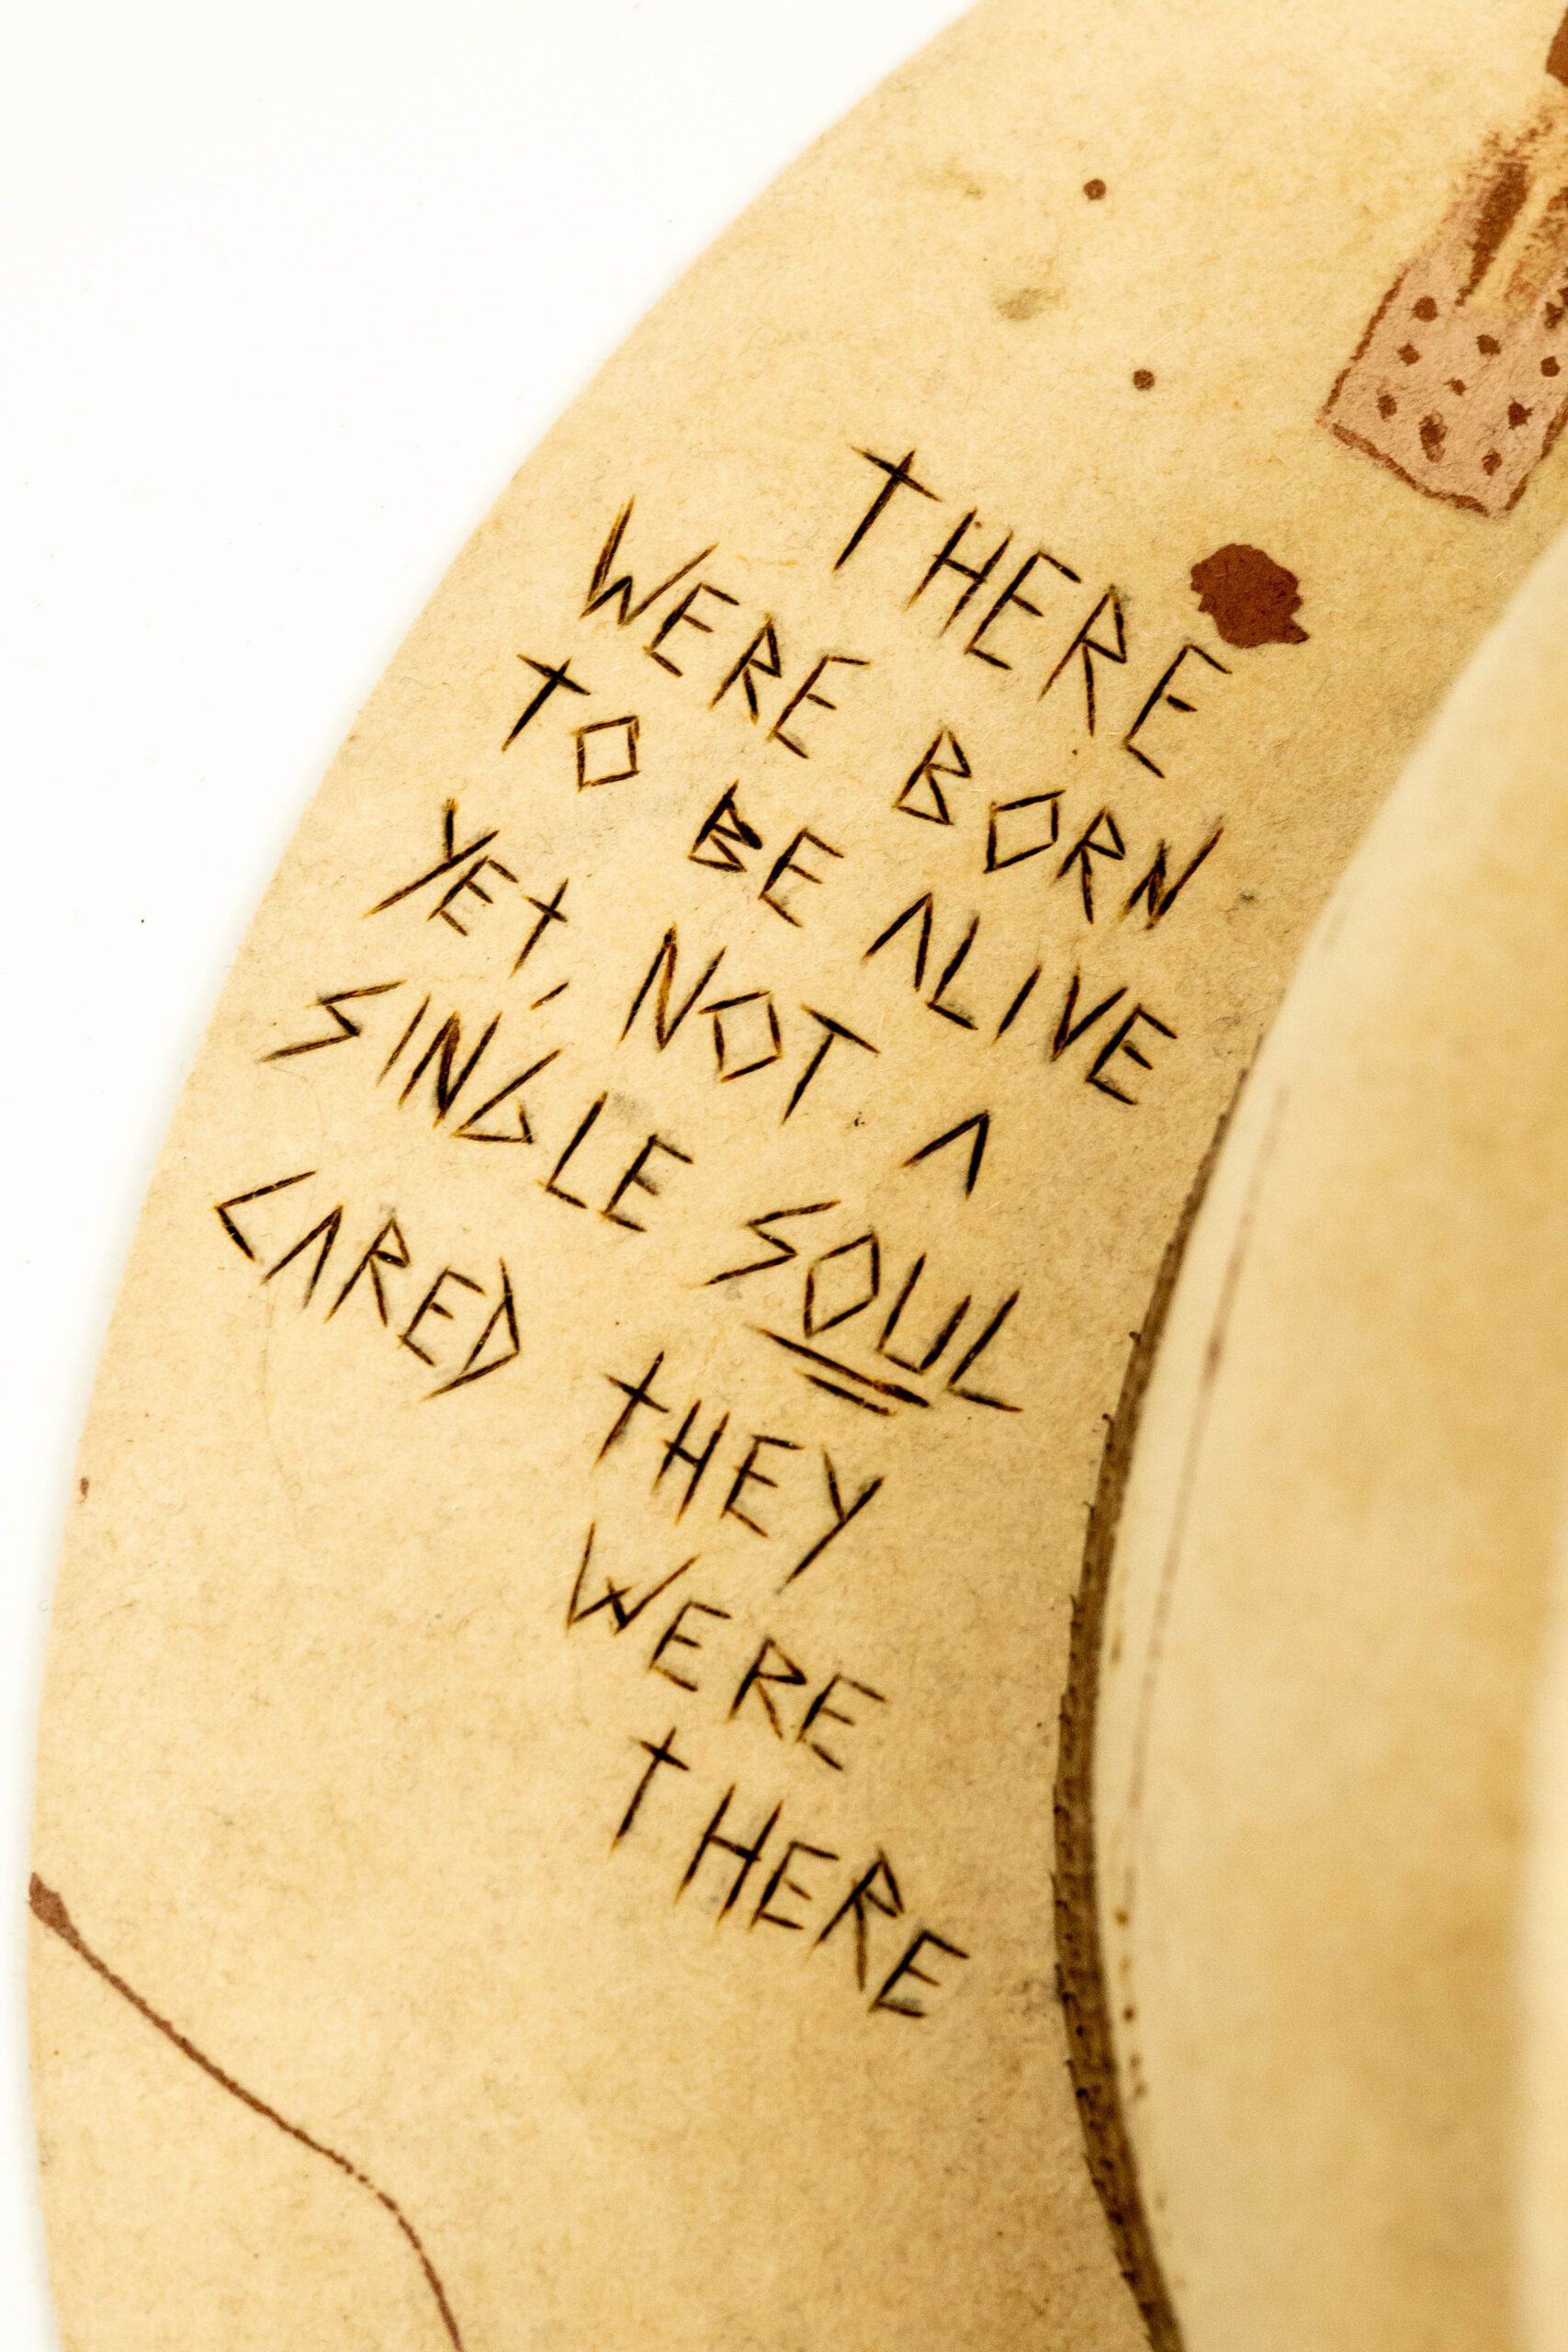 THERE
WERE BORN
TO BE ALIVE
YET, NOT A
SINGLE SOUL
CARED THEY
WERE
THERE